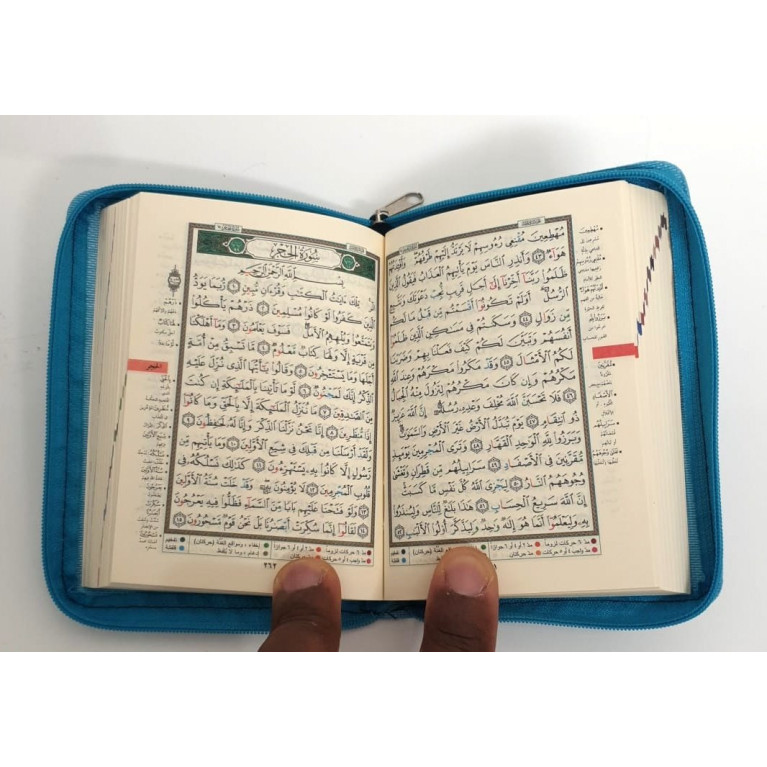 مُهْطِعِينَ مُقْنِعِي رُءُوسِهِمْ لَا يَرْتَدُّ إِلَيْهِمْ طَرْفُهُمْ وَأَفْـِٔدَتُهُمْ
هَوَآءٌ ٤٣ وَأَنذِرِ ٱلنَّاسَ يَوْمَ يَأْتِيهِمُ ٱلْعَذَابُ فَيَقُولُ ٱلَّذِينَ
ظَلَمُوا۟ رَبَّنَآ أَخِّرْنَآ إِلَىٰٓ أَجَلٍ قَرِيبٍ نُّجِبْ دَعْوَتَكَ وَنَتَّبِعِ
ٱلرُّسُلَ أَوَلَمْ تَكُونُوٓا۟ أَقْسَمْتُم مِّن قَبْلُ مَا لَكُم
مِّن زَوَالٍ ٤٤ وَسَكَنتُمْ فِى مَسَـٰكِنِ ٱلَّذِينَ ظَلَمُوٓا۟
أَنفُسَهُمْ وَتَبَيَّنَ لَكُمْ كَيْفَ فَعَلْنَا بِهِمْ وَضَرَبْنَا
لَكُمُ ٱلْأَمْثَالَ ٤٥ وَقَدْ مَكَرُوا۟ مَكْرَهُمْ وَعِندَ ٱللَّهِ
مَكْرُهُمْ وَإِن كَانَ مَكْرُهُمْ لِتَزُولَ مِنْهُ ٱلْجِبَالُ
٤٦ فَلَا تَحْسَبَنَّ ٱللَّهَ مُخْلِفَ وَعْدِهِۦ رُسُلَهُۥٓ إِنَّ ٱللَّهَ عَزِيزٌ
ذُو ٱنتِقَامٍ ٤٧ يَوْمَ تُبَدَّلُ ٱلْأَرْضُ غَيْرَ ٱلْأَرْضِ وَٱلسَّمَـٰوَٰتُ
وَبَرَزُوا۟ لِلَّهِ ٱلْوَٰحِدِ ٱلْقَهَّارِ ٤٨ وَتَرَى ٱلْمُجْرِمِينَ يَوْمَئِذٍ
مُّقَرَّنِينَ فِى ٱلْأَصْفَادِ ٤٩ سَرَابِيلُهُم مِّن قَطِرَانٍ وَتَغْشَىٰ
وُجُوهَهُمُ ٱلنَّارُ ٥٠ لِيَجْزِىَ ٱللَّهُ كُلَّ نَفْسٍ مَّا كَسَبَتْ
إِنَّ ٱللَّهَ سَرِيعُ ٱلْحِسَابِ ٥١ هَـٰذَا بَلَـٰغٌ لِّلنَّاسِ وَلِيُنذَرُوا۟
بِهِۦ وَلِيَعْلَمُوٓا۟ أَنَّمَا هُوَ إِلَـٰهٌ وَٰحِدٌ وَلِيَذَّكَّرَ أُو۟لُوا۟ ٱلْأَلْبَـٰبِ ٥٢
سُورَةُ الحِجْرِ
بِسْمِ ٱللَّهِ ٱلرَّحْمَـٰنِ ٱلرَّحِيمِ
الٓر تِلْكَ ءَايَـٰتُ ٱلْكِتَـٰبِ وَقُرْءَانٍ مُّبِينٍ ١ رُّبَمَا يَوَدُّ
ٱلَّذِينَ كَفَرُوا۟ لَوْ كَانُوا۟ مُسْلِمِينَ ٢ ذَرْهُمْ يَأْكُلُوا۟
وَيَتَمَتَّعُوا۟ وَيُلْهِهِمُ ٱلْأَمَلُ فَسَوْفَ يَعْلَمُونَ ٣ وَمَآ أَهْلَكْنَا
مِن قَرْيَةٍ إِلَّا وَلَهَا كِتَابٌ مَّعْلُومٌ ٤ مَّا تَسْبِقُ مِنْ أُمَّةٍ
أَجَلَهَا وَمَا يَسْتَـْٔخِرُونَ ٥ وَقَالُوا۟ يَـٰٓأَيُّهَا ٱلَّذِى نُزِّلَ عَلَيْهِ
ٱلذِّكْرُ إِنَّكَ لَمَجْنُونٌ ٦ لَّوْ مَا تَأْتِينَا بِٱلْمَلَـٰٓئِكَةِ إِن كُنتَ
مِنَ ٱلصَّـٰدِقِينَ ٧ مَا نُنَزِّلُ ٱلْمَلَـٰٓئِكَةَ إِلَّا بِٱلْحَقِّ وَمَا كَانُوٓا۟
إِذًا مُّنظَرِينَ ٨ إِنَّا نَحْنُ نَزَّلْنَا ٱلذِّكْرَ وَإِنَّا لَهُۥ لَحَـٰفِظُونَ ٩
وَلَقَدْ أَرْسَلْنَا مِن قَبْلِكَ فِى شِيَعِ ٱلْأَوَّلِينَ ١٠ وَمَا يَأْتِيهِم مِّن
رَّسُولٍ إِلَّا كَانُوا۟ بِهِۦ يَسْتَهْزِءُونَ ١١ كَذَٰلِكَ نَسْلُكُهُۥ فِى
قُلُوبِ ٱلْمُجْرِمِينَ ١٢ لَا يُؤْمِنُونَ بِهِۦ وَقَدْ خَلَتْ سُنَّةُ ٱلْأَوَّلِينَ
١٣ وَلَوْ فَتَحْنَا عَلَيْهِم بَابًا مِّنَ ٱلسَّمَآءِ فَظَلُّوا۟ فِيهِ يَعْرُجُونَ
١٤ لَقَالُوٓا۟ إِنَّمَا سُكِّرَتْ أَبْصَـٰرُنَا بَلْ نَحْنُ قَوْمٌ مَّسْحُورُونَ ١٥
الحجر
٢٦٢